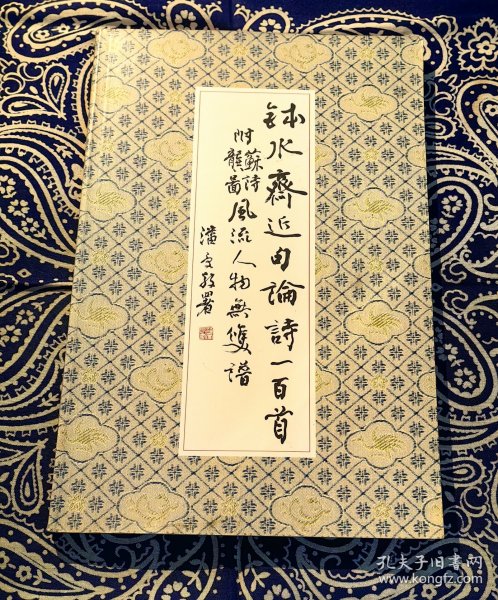 钵水齋近句論詩一百首
附蘇詩龔畵風流人物無雙譜
潘受題署
孔夫子旧书网
www.kongfz.com